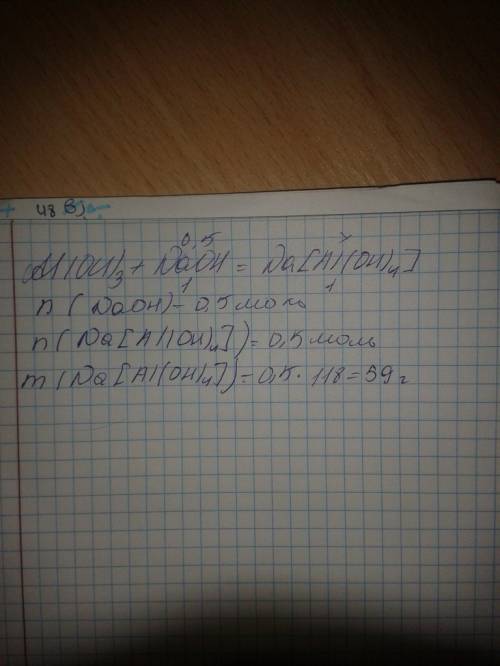 48 в)
0,5 x
Al(OH)3 + NaOH = Na[Al(OH)4]
1 1
n (NaOH) = 0,5 моль
n (Na[Al(OH)4]) = 0,5 моль
m (Na[Al(OH)4]) = 0,5 · 118 = 59 г